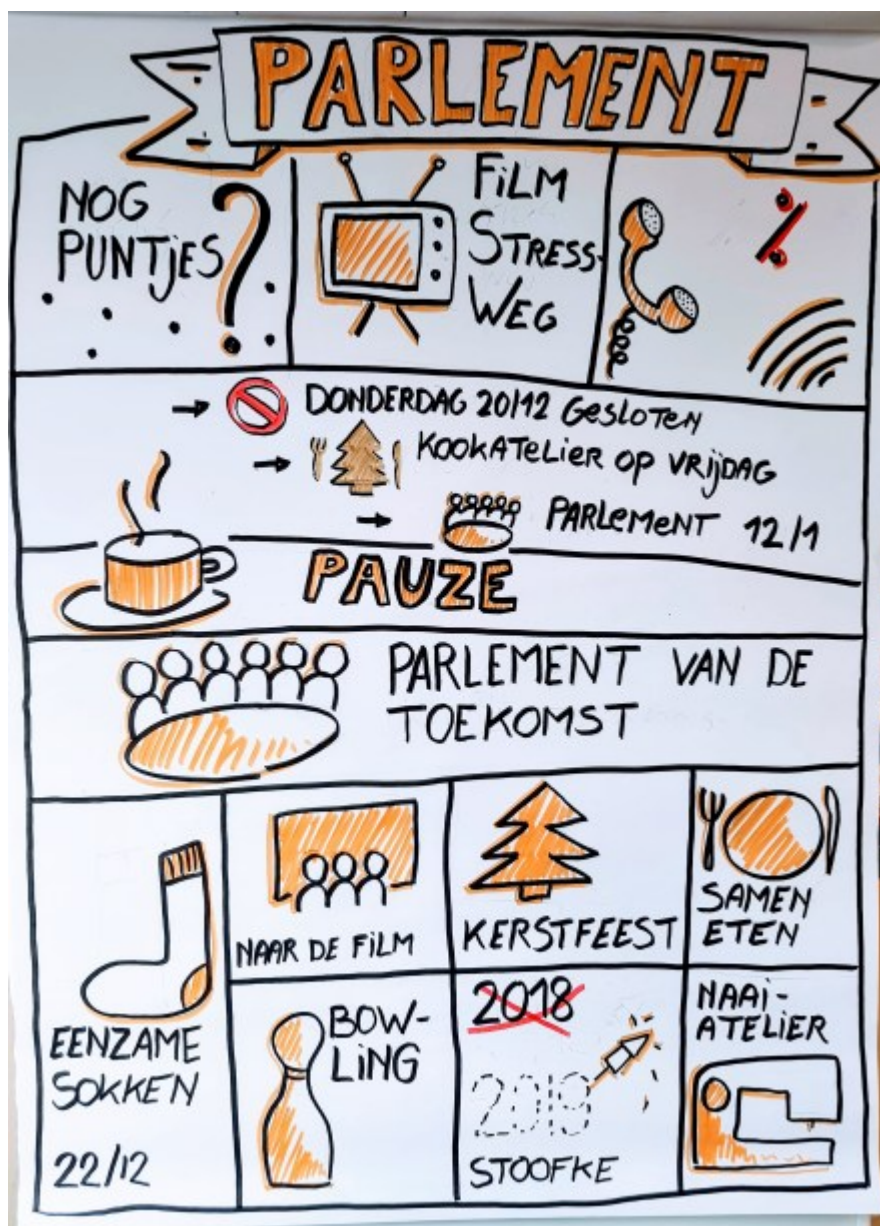 PARLEMENT
NOG
PUNTJES?
FiLM
STRESS-
WEG
%
DONDERDAG 20/12 GESLOTEN
KOOKATELIER OP VRIJDAG
PARLEMENT 12/1
PAUZE
PARLEMENT VAN DE
TOEKOMST
EENZAME
SOKKEN
22/12
NAAR DE FiLM
KERSTFEEST
SAMEN
ETEN
BOW-
LiNG
2018
2019
STOOFKE
NAAi-
ATELIER